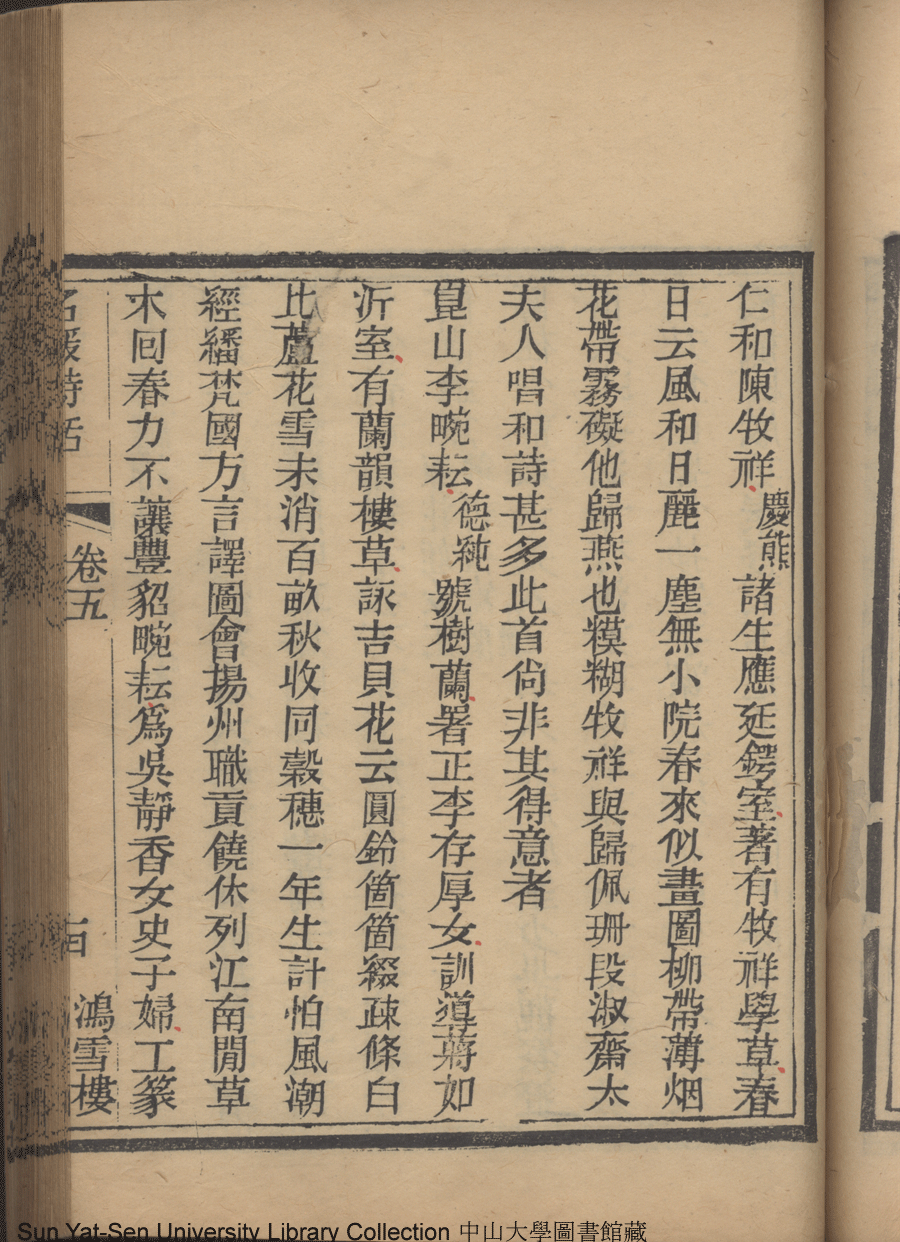 仁和陳牧祥慶熊諸生應延鍔室著有牧祥學草春
日云風和日麗一塵無小院春來似畫圖柳帶薄烟
花帶霧礙他歸燕也糢糊牧祥與歸佩珊段淑齋太
夫人唱和詩甚多此首尙非其得意者
崑山李畹耘德純號樹蘭署正李存厚女訓導蔣如
沂室有蘭韻樓草詠吉貝花云圓鈴箇箇綴疎條白
比蘆花雪未消百畝秋收同榖穗一年生計怕風潮
經繙梵國方言譯圖會揚州職貢饒休列江南閒草
木回春力不讓豐貂畹耘爲吳靜香女史子婦工篆
名媛詩話
卷五
鴻雪樓
Sun Yat-Sen University Library Collection 中山大學圖書館藏